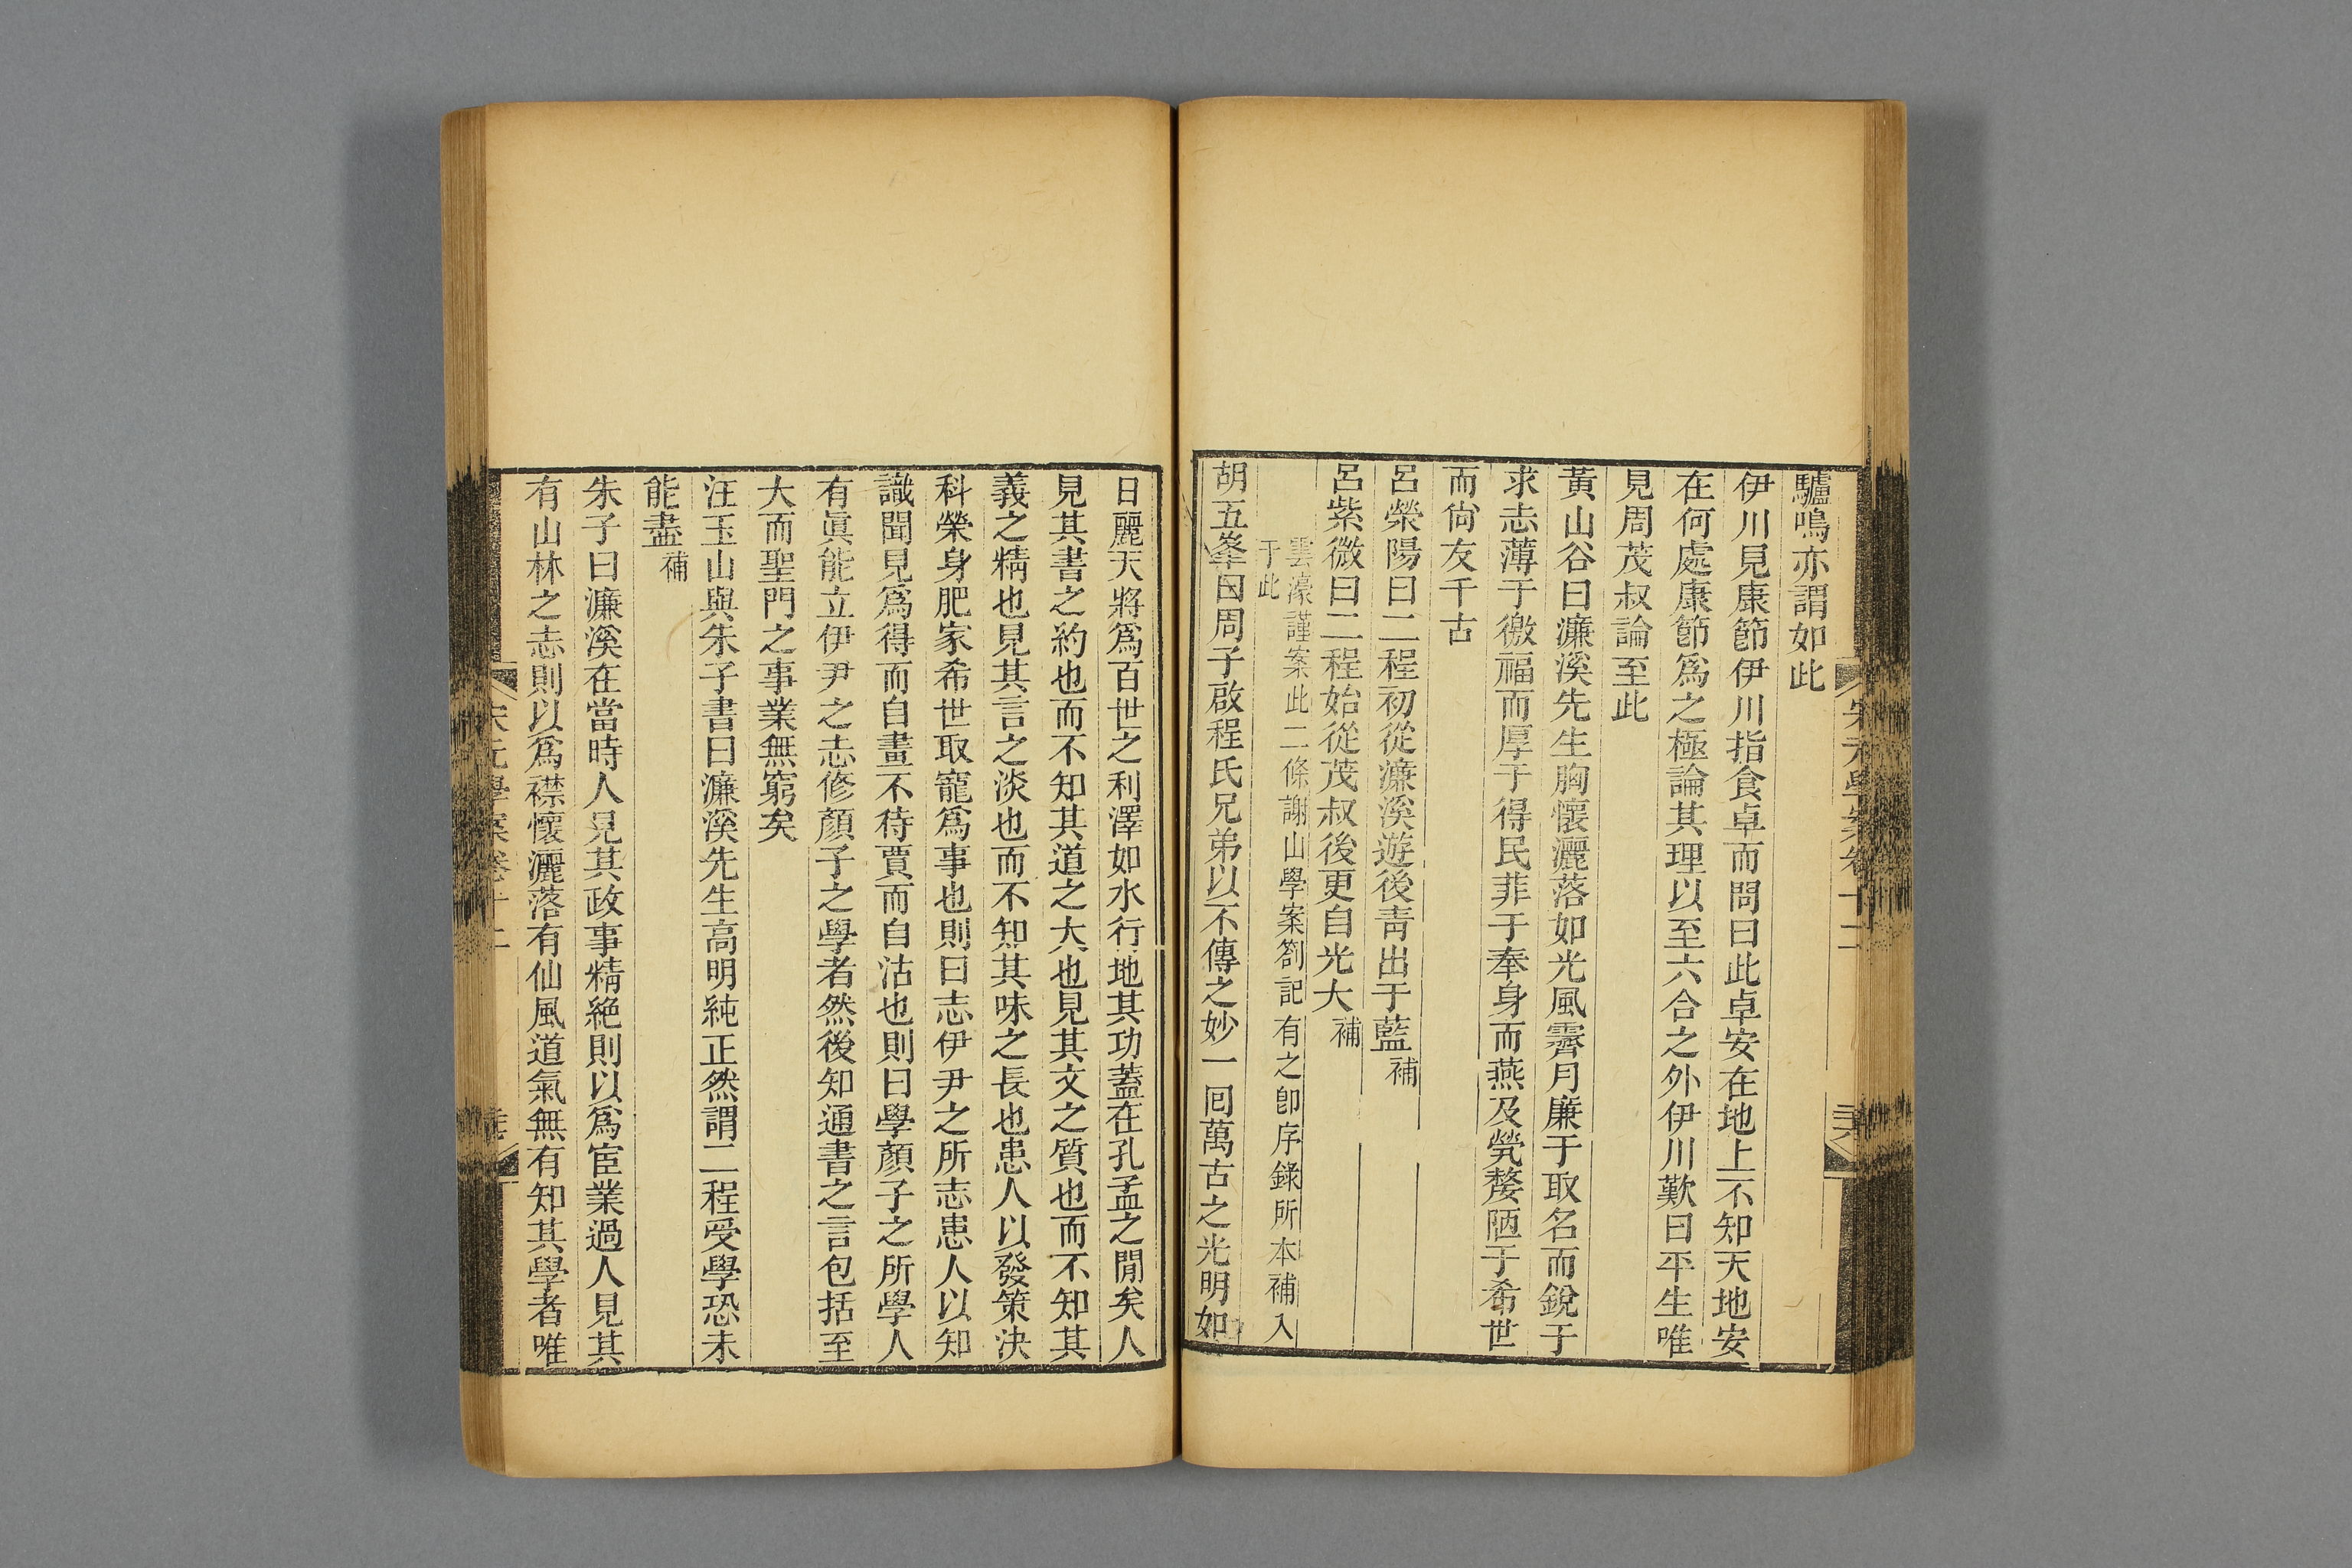 驢鳴亦謂如此
伊川見康節伊川指食卓而問曰此卓安在地上不知天地安
在何處康節爲之極論其理以至六合之外伊川歎曰平生唯
見周茂叔論至此
黃山谷曰濂溪先生胸懷灑落如光風霽月廉于取名而銳于
求志薄于徼福而厚于得民菲于奉身而燕及煢嫠陋于希世
而尙友千古
呂滎陽曰二程初從濂溪遊後靑出于藍補
呂紫微曰二程始從茂叔後更自光大補
雲濠謹案此二條謝山學案劄記有之卽序錄所本補入
于此
胡五峯曰周子啟程氏兄弟以不傳之妙一回萬古之光明如
日麗天將爲百世之利澤如水行地其功蓋在孔孟之閒矣人
見其書之約也而不知其道之大也見其文之質也而不知其
義之精也見其言之淡也而不知其味之長也患人以發策決
科榮身肥家希世取寵爲事也則曰志伊尹之所志患人以知
識聞見爲得而自畫不待賈而自沽也則曰學顏子之所學人
有眞能立伊尹之志修顏子之學者然後知通書之言包括至
大而聖門之事業無窮矣
汪玉山與朱子書曰濂溪先生高明純正然謂二程受學恐未
能盡補
朱子曰濂溪在當時人見其政事精絶則以爲宦業過人見其
有山林之志則以爲襟懷灑落有仙風道氣無有知其學者唯
宋元學案卷十二